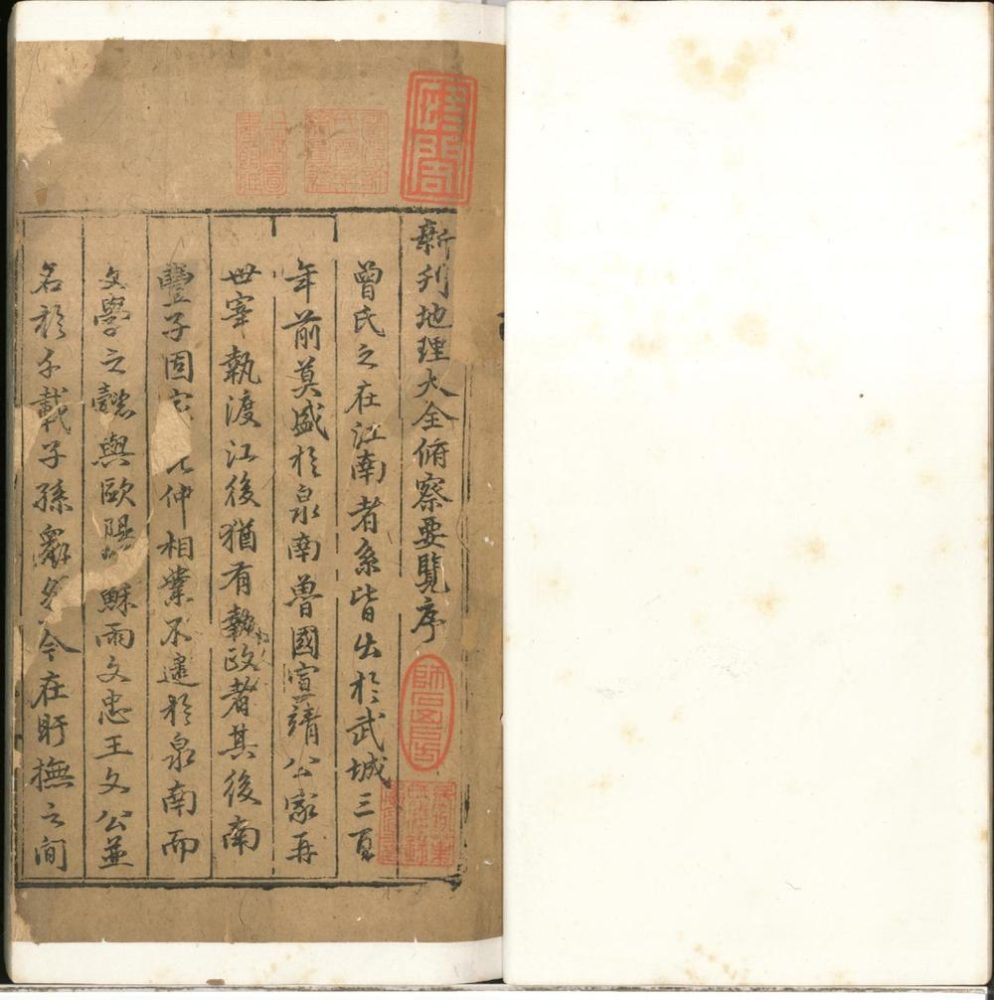 新刋地理大全俯察要覽序
曾氏之在江南者系皆出於武城三百
年前莫盛於泉南曾國宣靖公家再
世宰執渡江後猶有執政者其後南
豐子固仲相業不逮於泉南而
文學之懿與歐陽蘇兩文忠王文公並
名於千載子孫多今在盱撫之間